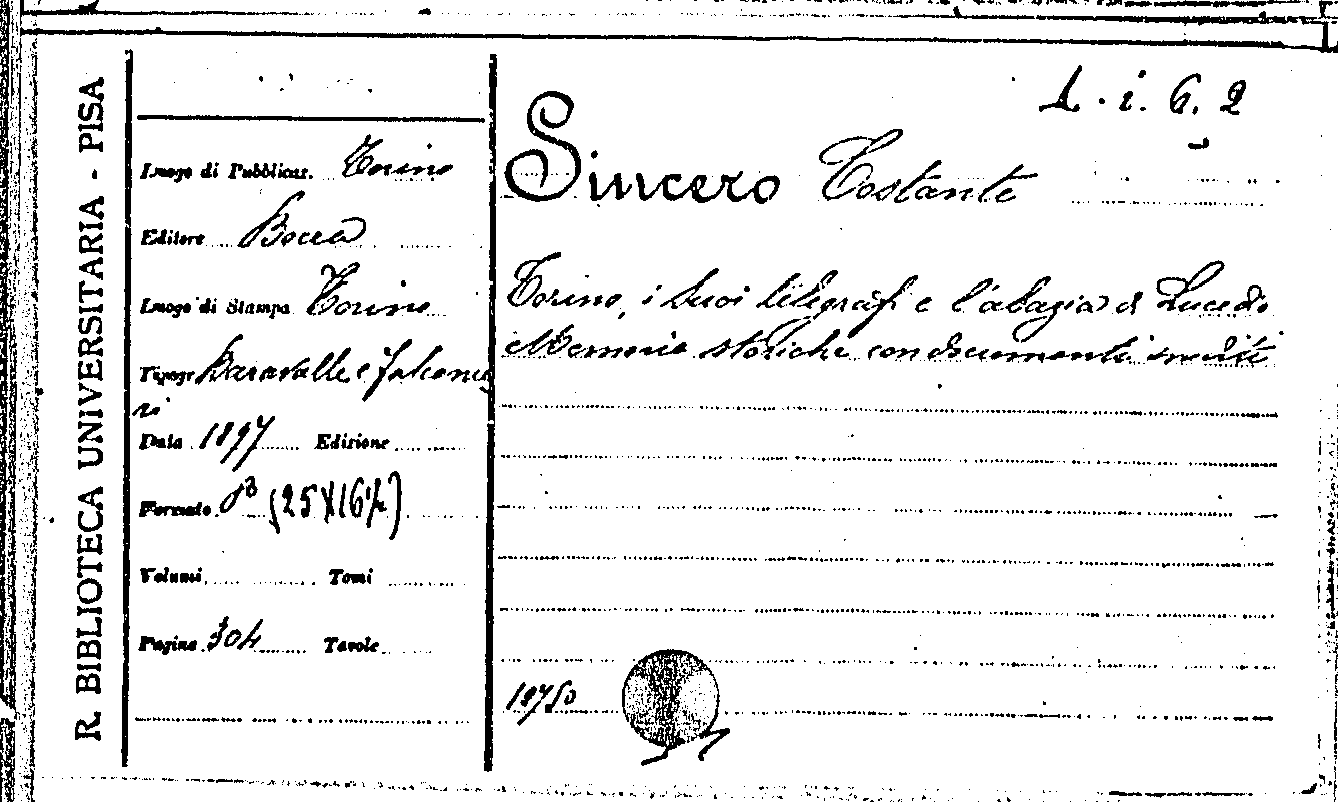 R. BIBLIOTECA UNIVERSITARIA - PISA
Luogo di Pubblicaz. Torino
Editore Bocca
Luogo di Stampa Torino
Tipogr. Baravalle e Falconie
ri
Data 1897 Edizione
Formato 8° (25X16½)
Volumi Tomi
Pagine 304 Tavole
1. i. 6. 2
Sincero Costante
Torino, i suoi tipografi e l'abazia di Lucedio
Memorie storiche con documenti inediti